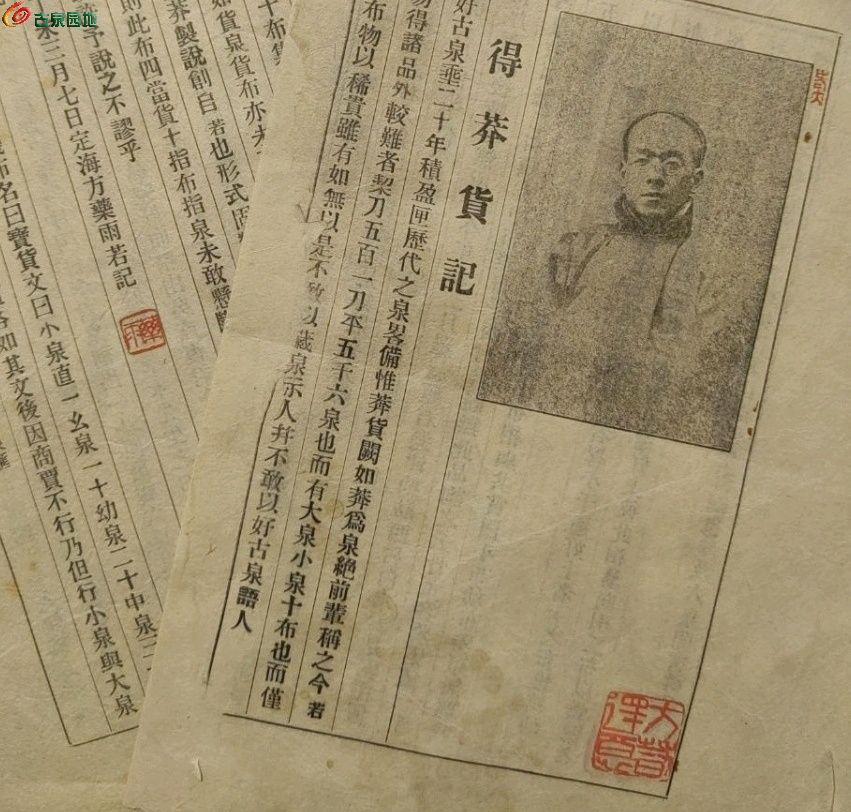 古泉园地
得莽貨記
好古泉垂二十年積盈匣歷代之泉畧備惟莽貨闕如莽爲泉絕前輩稱之今若
易得諸品外較難者栔刀五百一刀平五千六泉也而有大泉小泉十布也而僅
布物以稀貴雖有如無以是不敢以藏泉示人幷不敢以好古泉語人
十布
如貨泉貨布亦未
莽製說創自若也形式
則此布四當貨十指布指泉未敢懸
予說之不謬乎
未三月七日定海方藥雨若記
藥雨
布名曰寶貨文曰小泉直一幺泉一十幼泉二十中泉三
如其文後因商賈不行乃但行小泉與大泉
方若